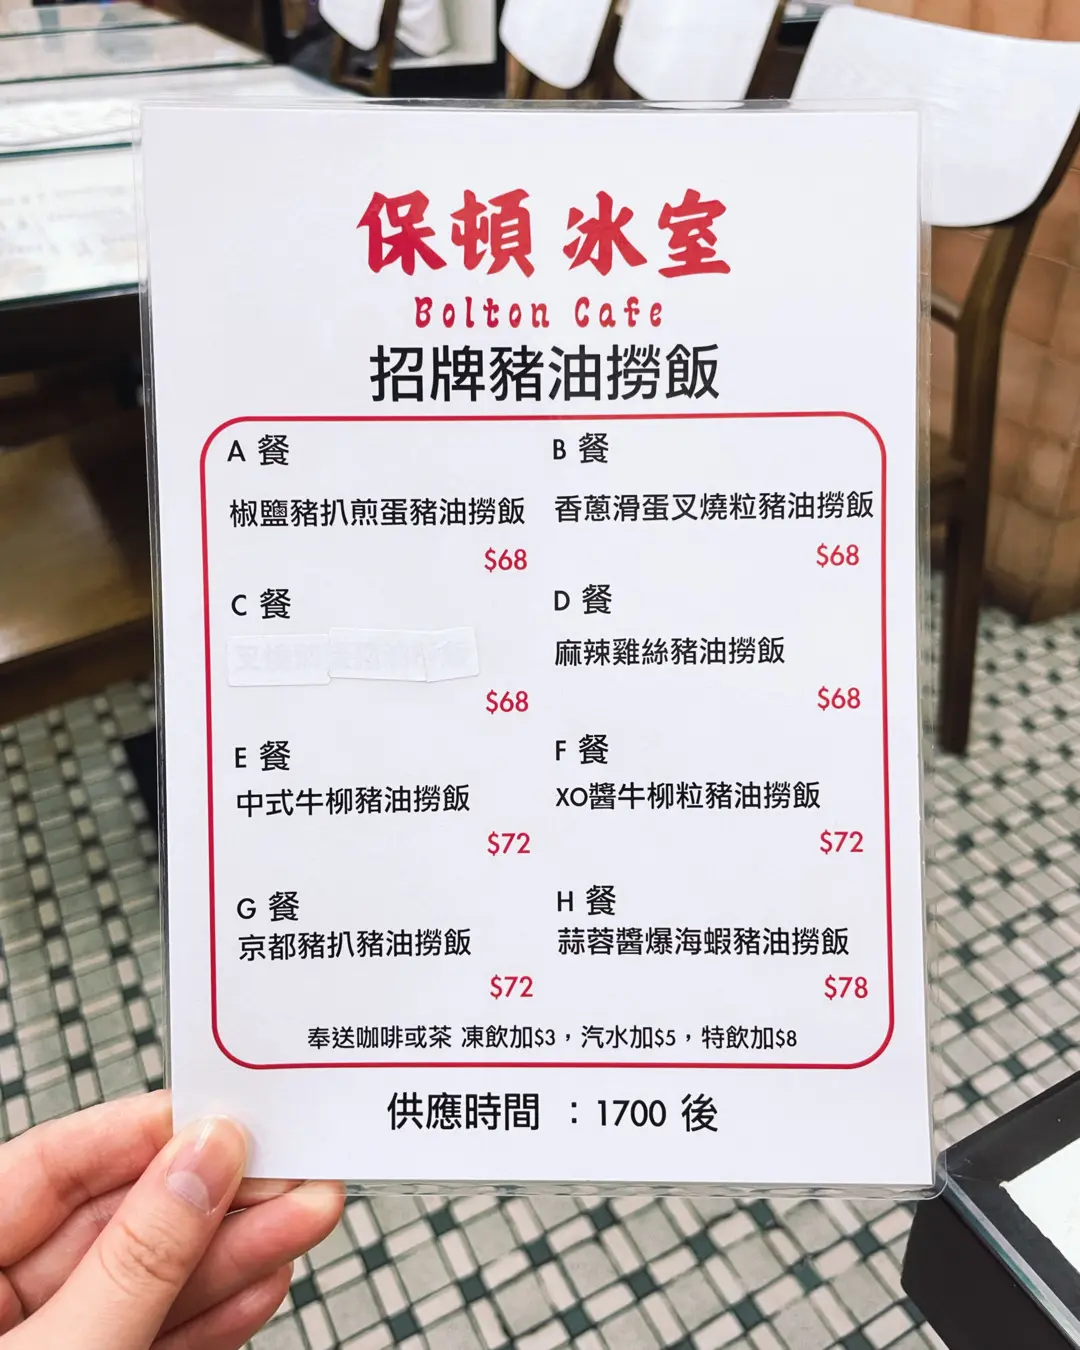 保頓冰室
Bolton Cafe
招牌豬油撈飯
A 餐
椒鹽豬扒煎蛋豬油撈飯
$68
B 餐
香蔥滑蛋叉燒粒豬油撈飯
$68
C 餐
$68
D 餐
麻辣雞絲豬油撈飯
$68
E 餐
中式牛柳豬油撈飯
$72
F 餐
XO醬牛柳粒豬油撈飯
$72
G 餐
京都豬扒豬油撈飯
$72
H 餐
蒜蓉醬爆海蝦豬油撈飯
$78
奉送咖啡或茶 凍飲加$3，汽水加$5，特飲加$8
供應時間 ：1700 後